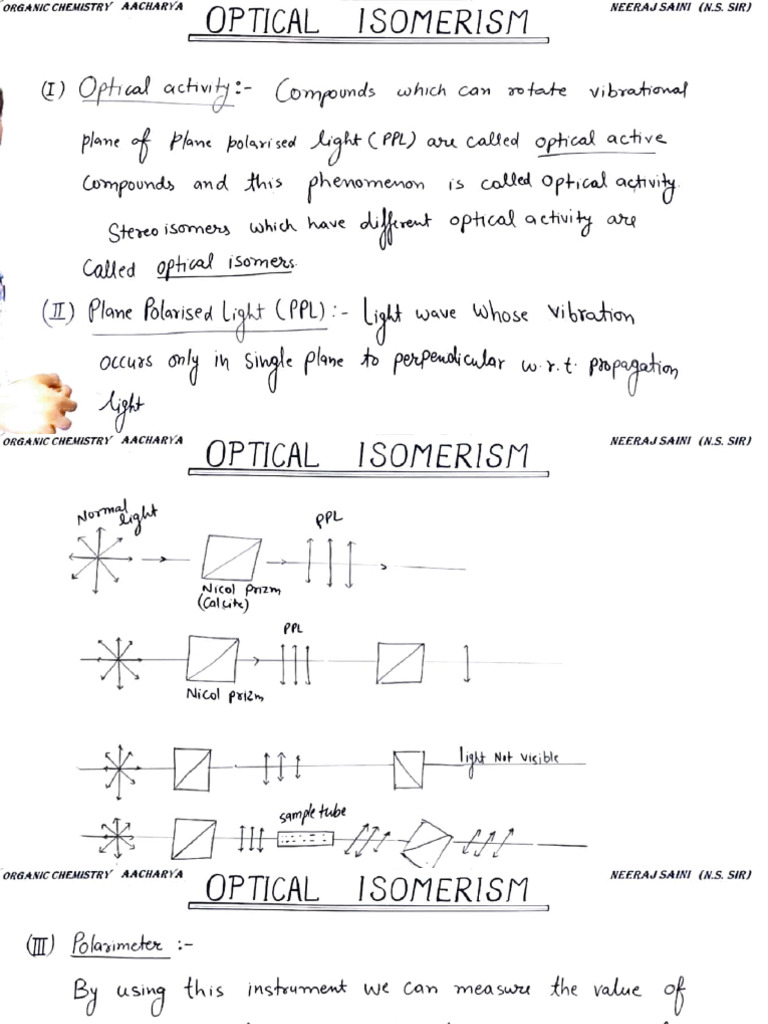 ORGANIC CHEMISTRY AACHARYA
OPTICAL ISOMERISM
NEERAJ SAINI (N.S. SIR)
(I) Optical activity:- Compounds which can rotate vibrational
plane of Plane polarised light (PPL) are called optical active
Compounds and this phenomenon is called optical activity.
Stereoisomers which have different optical activity are
Called optical isomers.
(II) Plane Polarised Light (PPL) :- Light wave whose vibration
occurs only in single plane to perpendicular w.r.t. propagation
light
ORGANIC CHEMISTRY AACHARYA
OPTICAL ISOMERISM
NEERAJ SAINI (N.S. SIR)
Normal light
PPL
Nicol Prizm
(Calcite)
PPL
Nicol prizm
light Not visible
sample tube
ORGANIC CHEMISTRY AACHARYA
OPTICAL ISOMERISM
NEERAJ SAINI (N.S. SIR)
(III) Polarimeter :-
By using this instrument we can measure the value of